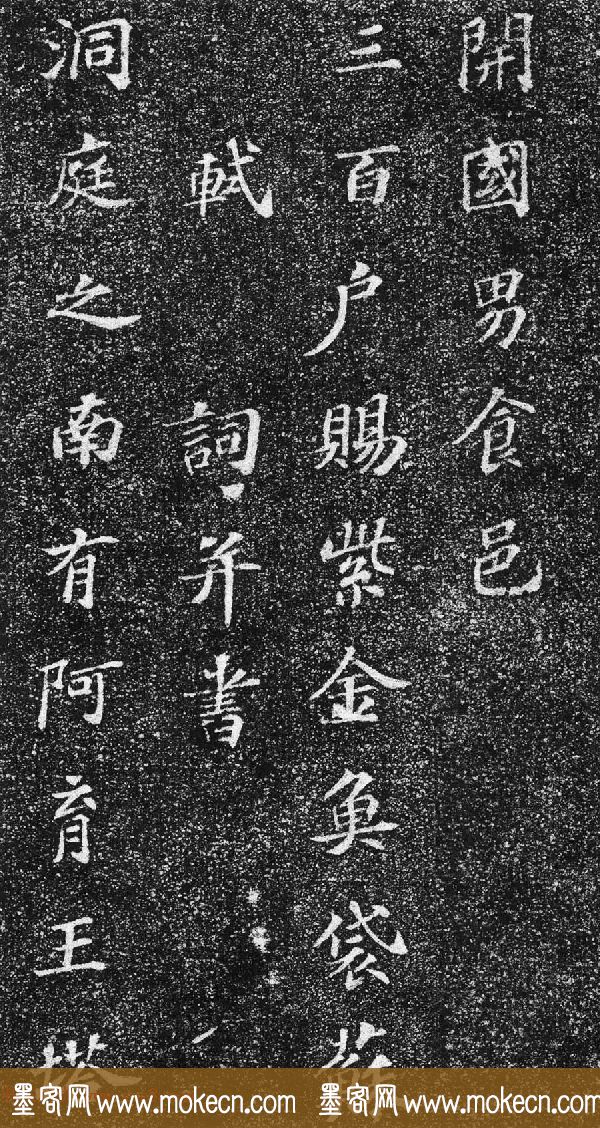 開國男食邑
三百户賜紫金魚袋蘇
軾 詞并書
洞庭之南有阿育王塔
墨客网 www.mokecn.com 墨客网 www.mokecn.com